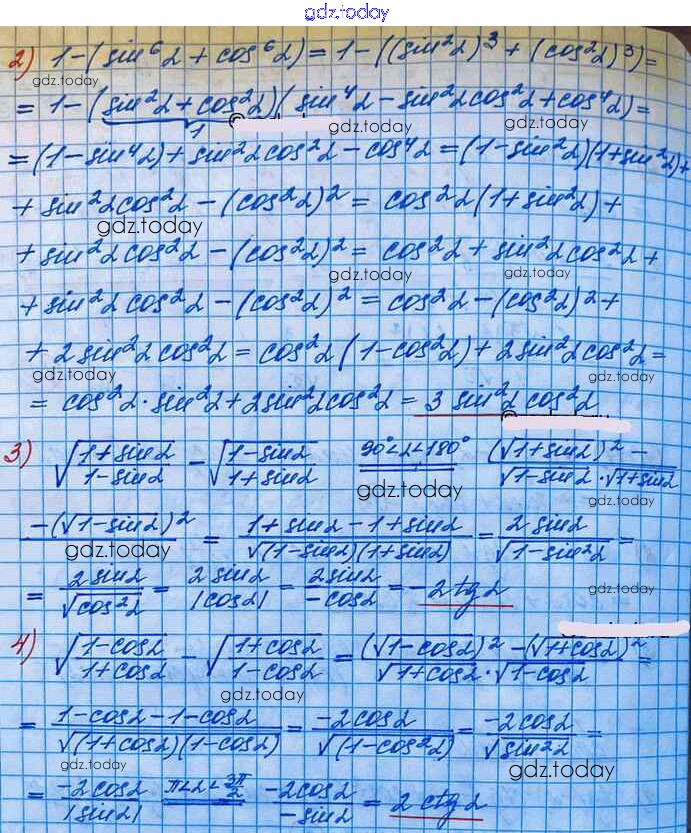 gdz.today
2) 1-(sin⁶α + cos⁶α) = 1-((sin²α)³ + (cos²α)³) =
gdz.today gdz.today
= 1-(sin²α + cos²α)(sin⁴α - sin²α cos²α + cos⁴α) =
1
gdz.today gdz.today
= (1-sin⁴α) + sin²α cos²α - cos⁴α = (1-sin²α)(1+sin²α) +
+ sin²α cos²α - (cos²α)² = cos²α (1+sin²α) +
gdz.today
+ sin²α cos²α - (cos²α)² = cos²α + sin²α cos²α +
gdz.today gdz.today
+ sin²α cos²α - (cos²α)² = cos²α - (cos²α)² +
+ 2 sin²α cos²α = cos²α (1-cos²α) + 2 sin²α cos²α =
gdz.today gdz.today
= cos²α · sin²α + 2 sin²α cos²α = 3 sin²α cos²α
3) √(1+sinα)/(1-sinα) - √(1-sinα)/(1+sinα) 90°<α<180° = (√1+sinα)² -
√1-sinα · √1+sinα
gdz.today
-(√1-sinα)² = (1+sinα - 1+sinα)/√(1-sinα)(1+sinα) = 2 sinα/√1-sin²α =
gdz.today
= 2 sinα/√cos²α = 2 sinα/|cosα| = 2 sinα/-cosα = -2 tgα
gdz.today
4) √(1-cosα)/(1+cosα) - √(1+cosα)/(1-cosα) = ((√1-cosα)² - (√1+cosα)²)/(√1+cosα · √1-cosα) =
gdz.today
= (1-cosα - 1-cosα)/√(1+cosα)(1-cosα) = -2cosα/√(1-cos²α) = -2cosα/√sin²α =
gdz.today gdz.today
= -2cosα/|sinα| π<α<3π/2 = -2cosα/-sinα = 2 ctgα